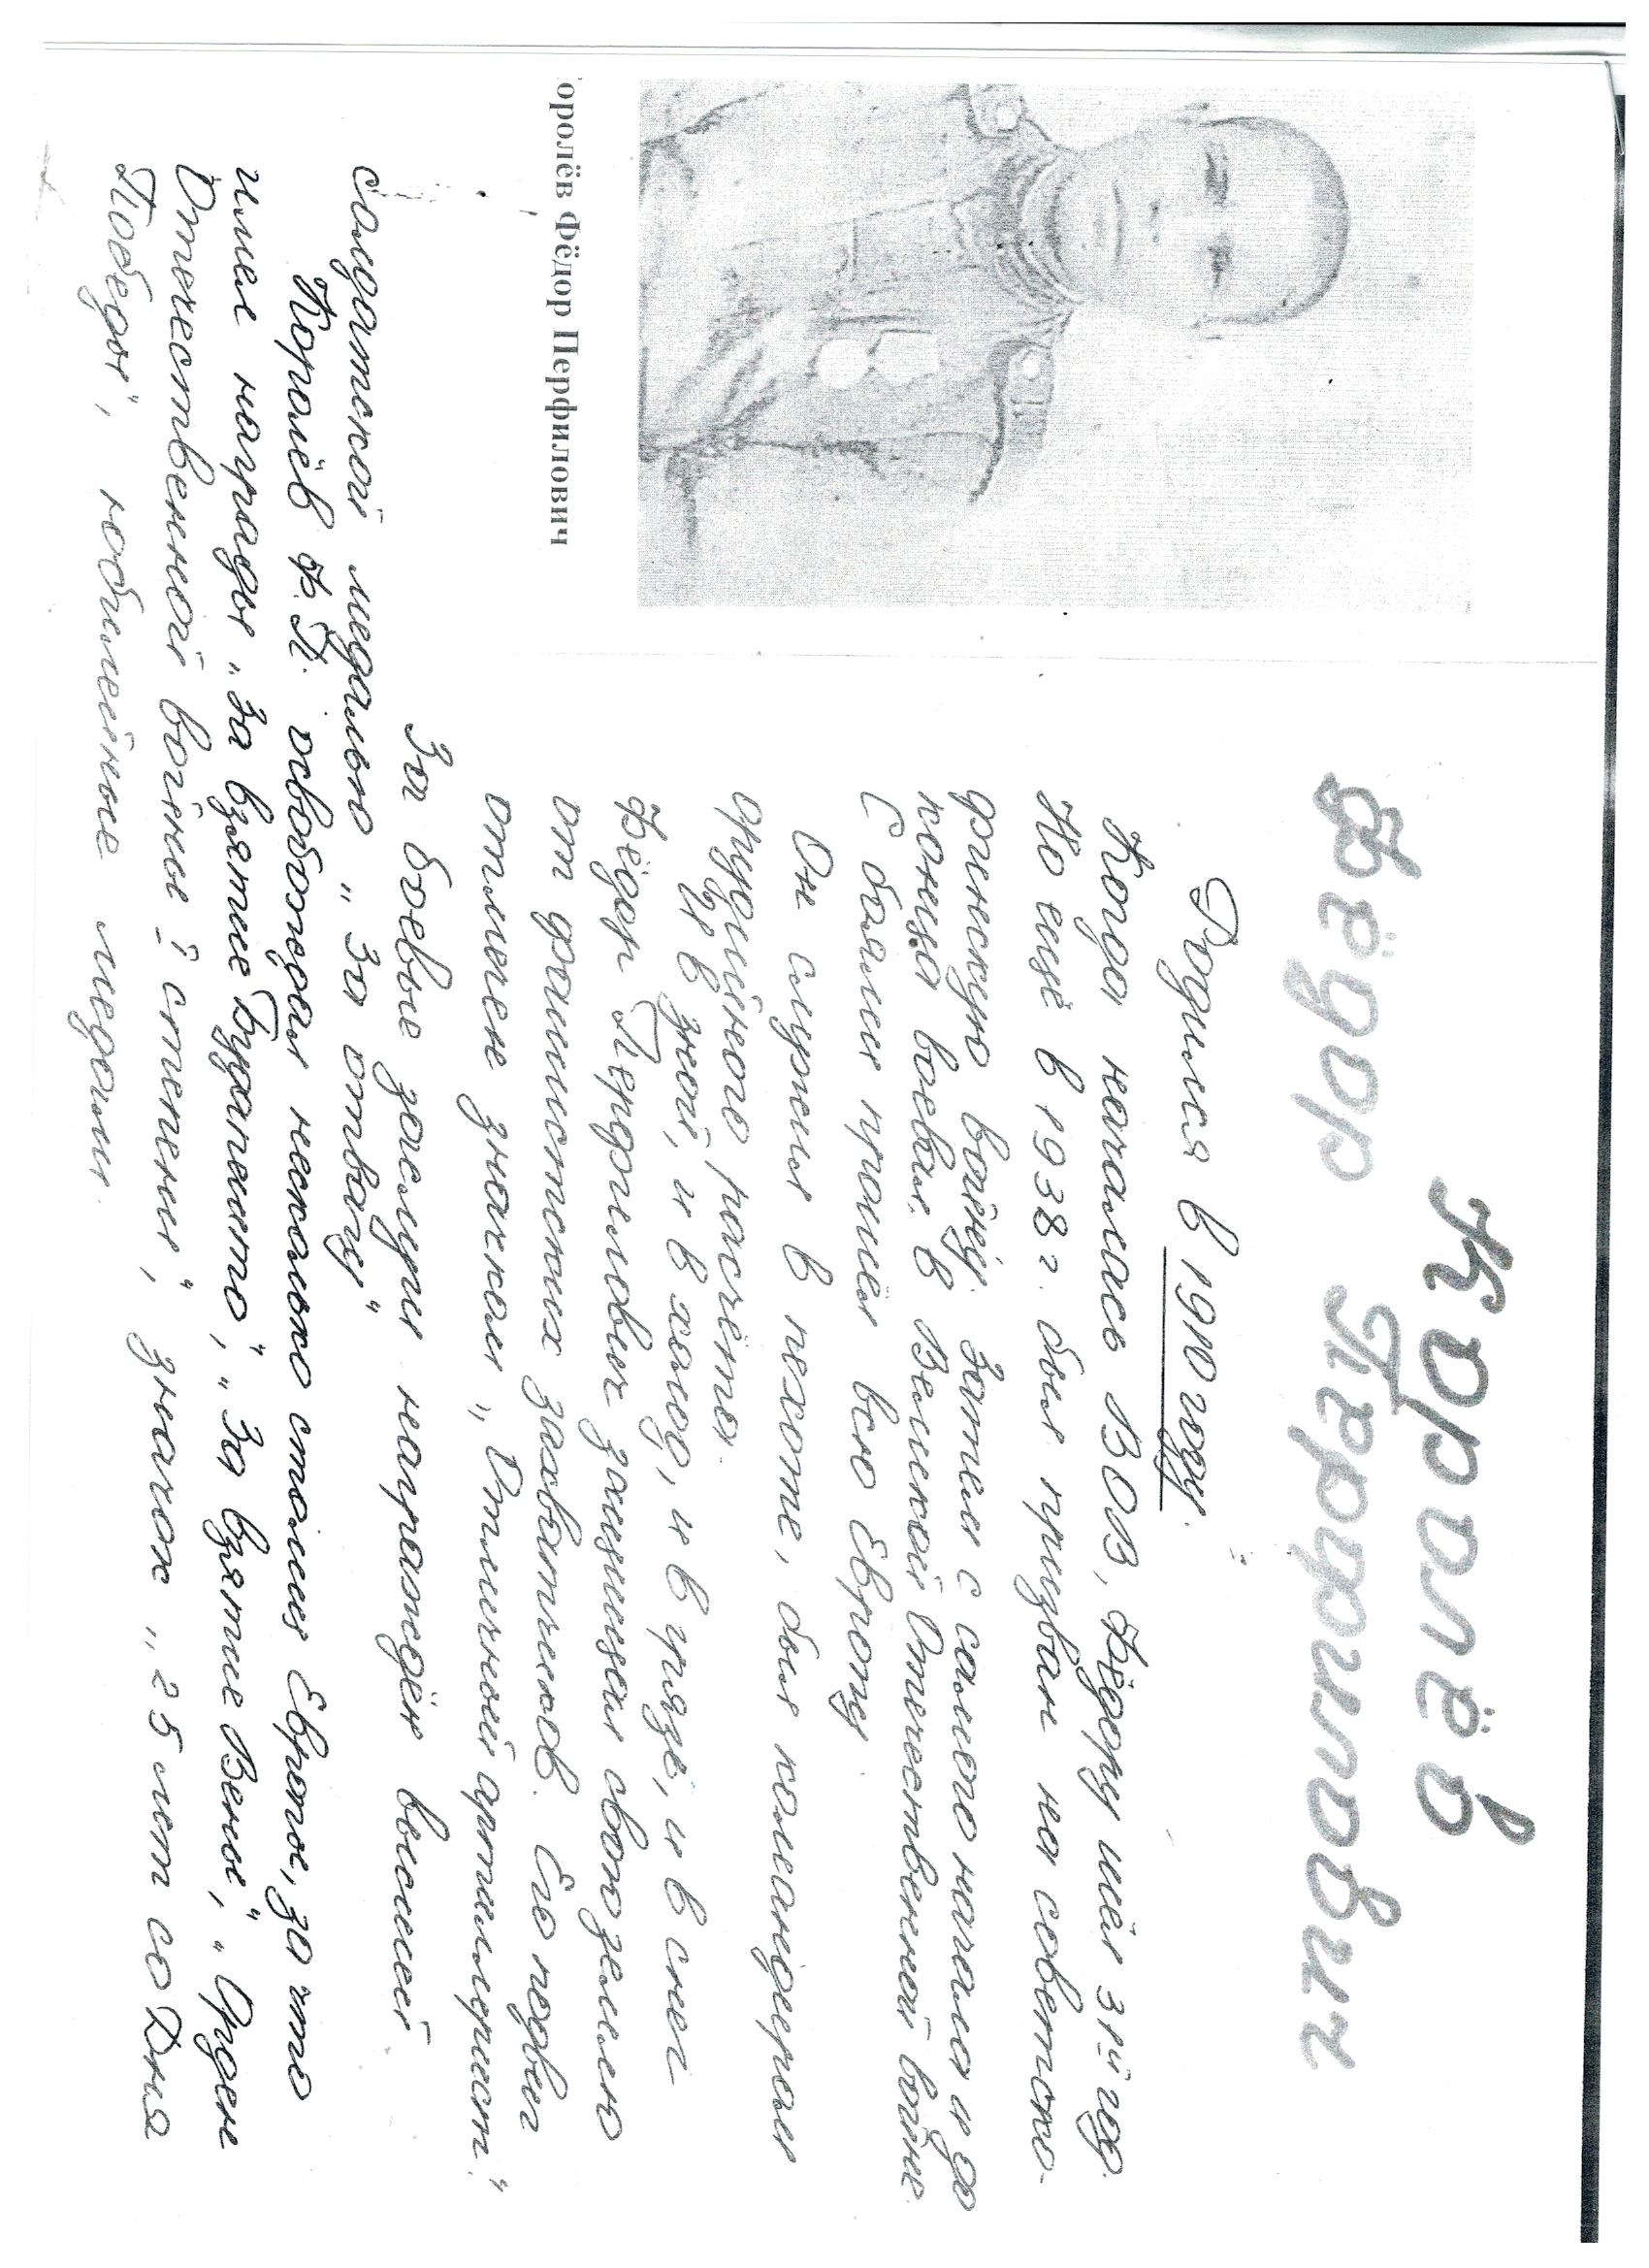 Королёв
Фёдор Перфилович
Родился в 1910 году.
Когда началась ВОВ, Фёдору шёл 31й год.
Но ещё в 1938 г. был призван на советско-
финскую войну. Затем с самого начала и до
конца воевал в Великой Отечественной войне.
С боями прошёл всю Европу
Он служил в пехоте, был командиром
орудийного расчёта.
И в зной, и в холод, и в грязь, и в снег
Фёдор Перфилович защищал свою землю
от фашистских захватчиков. Его подвиг
отмечен значком „Отличный артиллерист".
За боевые заслуги награждён высшей
оролёв Фёдор Перфилович
солдатской медалью „За отвагу"
Королёв Ф. П. освобождал несколько столиц Европы, за что
имел награды „За взятие Будапешта", „За взятие Вены", „Орден
Отечественной войны II степени", значок „25 лет со Дня
Победы", юбилейные медали.